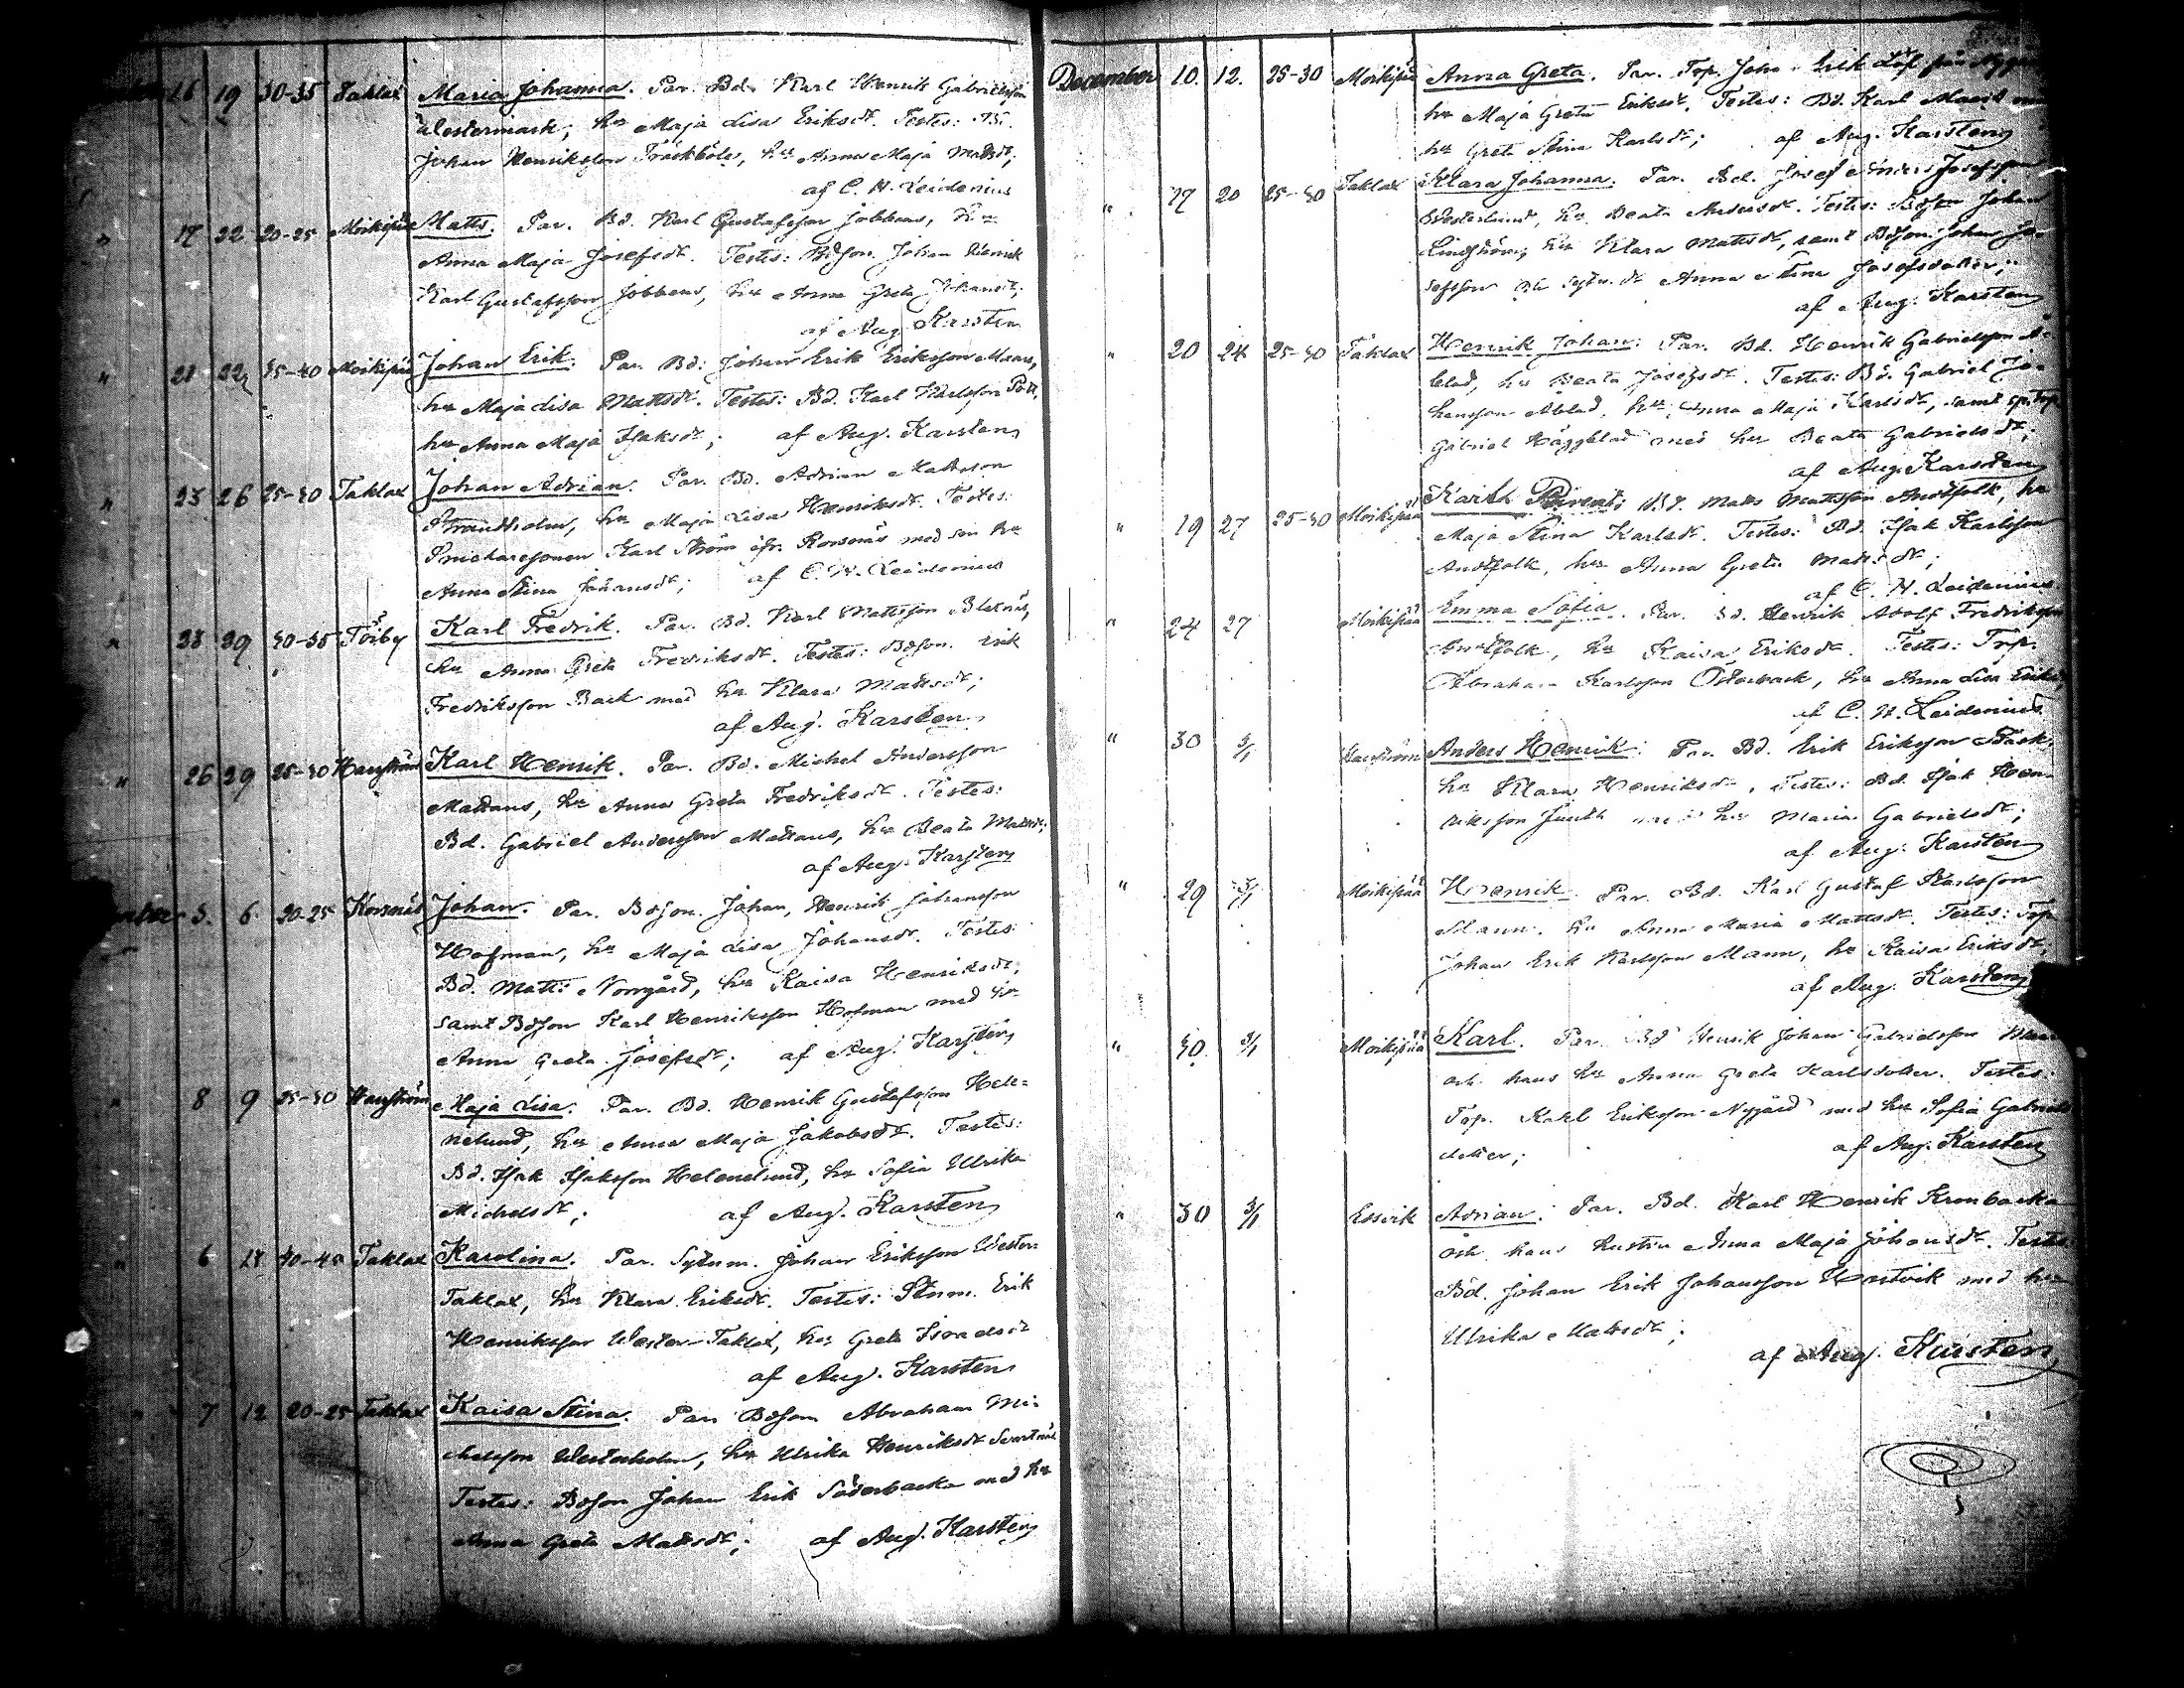 16 19 30-35 Taklax Maria Johanna. Par. Bd. Karl Henrik Gabrielsson
Westermark, hu Maja Lisa Eriksdr. Testes: Bd.
Johan Henriksson Träskböle, hu Anna Maja Mattsdr;
af C. H. Leidenius
" 17 22 20-25 Moikipää Matts. Par. Bd. Karl Gustafsson Jobbens, hu
Anna Maja Josefsdr. Testes: Bdson Johan Henrik
Karl Gustafsson Jobbens, hu Anna Greta Johansdr;
af Aug. Karsten
" 21 22 35-40 Moikipää Johan Erik. Par. Bd: Johan Erik Eriksson Manns,
hu Maja Lisa Mattsdr. Testes: Bd. Karl Karlsson
hu Anna Maja Isaksdr; af Aug. Karsten
" 23 26 25-30 Taklax Johan Adrian. Par. Bd. Adrian Mattsson
Strandholm, hu Maja Lisa Henriksdr. Testes:
Karl Ström ifr. Korsnäs med sin hu
Anna Stina Johansdr; af C. H. Leidenius
" 23 29 30-35 Töiby Karl Fredrik. Par. Bd. Karl Mattsson
hu Anna Greta Fredriksdr. Testes: Bdson. Erik
Fredriksson Back med hu Klara Mattsdr;
af Aug. Karsten
" 26 29 25-30 Harrström Karl Henrik. Par. Bd. Michel Andersson
Mattans, hu Anna Greta Fredriksdr. Testes:
Bd. Gabriel Andersson Mattans, hu Beata Mattsdr;
af Aug. Karsten
5. 6. 20-25 Korsnäs Johan. Par. Bdson. Johan Henrik Johansson
Hofman, hu Maja Lisa Johansdr. Testes:
Bd. Matts Norrgård, hu Kaisa Henriksdr,
samt Bdson Karl Henriksson Hofman med hu
Anna Greta Josefsdr; af Aug. Karsten
" 8 9 25-30 Harrström Maja Lisa. Par. Bd. Henrik Gustafsson Hele=
nelund, hu Anna Maja Jakobsdr. Testes:
Bd. Isak Isaksson Helenelund, hu Sofia Ulrika
Michelsdr; af Aug. Karsten
" 6 40-45 Taklax Karolina. Par. Sytnm. Johan Eriksson Wester-
Taklax, hu Klara Eriksdr. Testes: Erik
Henriksson Wester-Taklax, hu Greta Israelsdr
af Aug. Karsten
" 7 12 20-25 Taklax Kaisa Stina. Par. Bdson Abraham Mi-
chelsson Westerholm, hu Ulrika Henriksdr Svartnäs
Testes: Bdson Johan Erik Söderbacka med hu
Anna Greta Mattsdr; af Aug. Karsten
December 10. 12. 25-30 Moikipää Anna Greta. Par. Trp. Johan Erik Löf på
hu Maja Greta Eriksdr. Testes: Bd. Karl
hu Greta Stina Karlsdr; af Aug. Karsten
" 17 20 25-30 Taklax Klara Johanna. Par. Bd. Josef Anders Josefsson
Westerlund, hu Beata Andersdr. Testes: Bdson Johan
Lindström, hu Klara Mattsdr, samt Bdson Johan Jo-
sefsson Anna Stina Josefsdotter;
af Aug. Karsten
" 20 24 25-30 Taklax Henrik Johan. Par. Bd. Henrik Gabrielsson Å-
blad, hu Beata Josefsdr. Testes: Bd. Gabriel Jo-
hansson Åblad, hu Anna Maja Karlsdr, samt
Gabriel Häggblad med hu Beata Gabrielsdr;
af Aug. Karsten
" 19 27 25-30 Moikipää Bd. Matts Mattsson Andtfolk, hu
Maja Stina Karlsdr. Testes: Bd. Isak Karlsson
Andtfolk, hu Anna Greta Mattsdr;
af C. H. Leidenius
" 24 27 Moikipää Emma Sofia. Par. Bd. Henrik Adolf Fredriksson
Andtfolk, hu Kaisa Eriksdr. Testes: Trp.
Abraham Karlsson Österback, hu Anna Lisa Eriks
af C. H. Leidenius
" 30 3/1 Harrström Anders Henrik. Par. Bd. Erik Eriksson Bäck,
hu Klara Henriksdr. Testes: Bd. Isak Hen-
riksson med hu Maria Gabrielsdr;
af Aug. Karsten
" 29 3/1 Moikipää Henrik. Par. Bd. Karl Gustaf Karlsson
Mann, hu Anna Maria Mattsdr. Testes: Trp.
Johan Erik Karlsson Mann, hu Kaisa Eriksdr,
af Aug. Karsten
" 30. 3/1 Moikipää Karl. Par. Bd Henrik Johan Gabrielsson
och hans hu Anna Greta Karlsdotter. Testes:
Trp. Karl Eriksson Nygård med hu Sofia Gabriels
dotter; af Aug. Karsten
" 30 3/1 Edsvik Adrian. Par. Bd. Karl Henrik Kronbacka
och hans hustru Anna Maja Johansdr. Testes
Bd. Johan Erik Johansson Hostvik med hu
Ulrika Mattsdr;
af Aug. Karsten